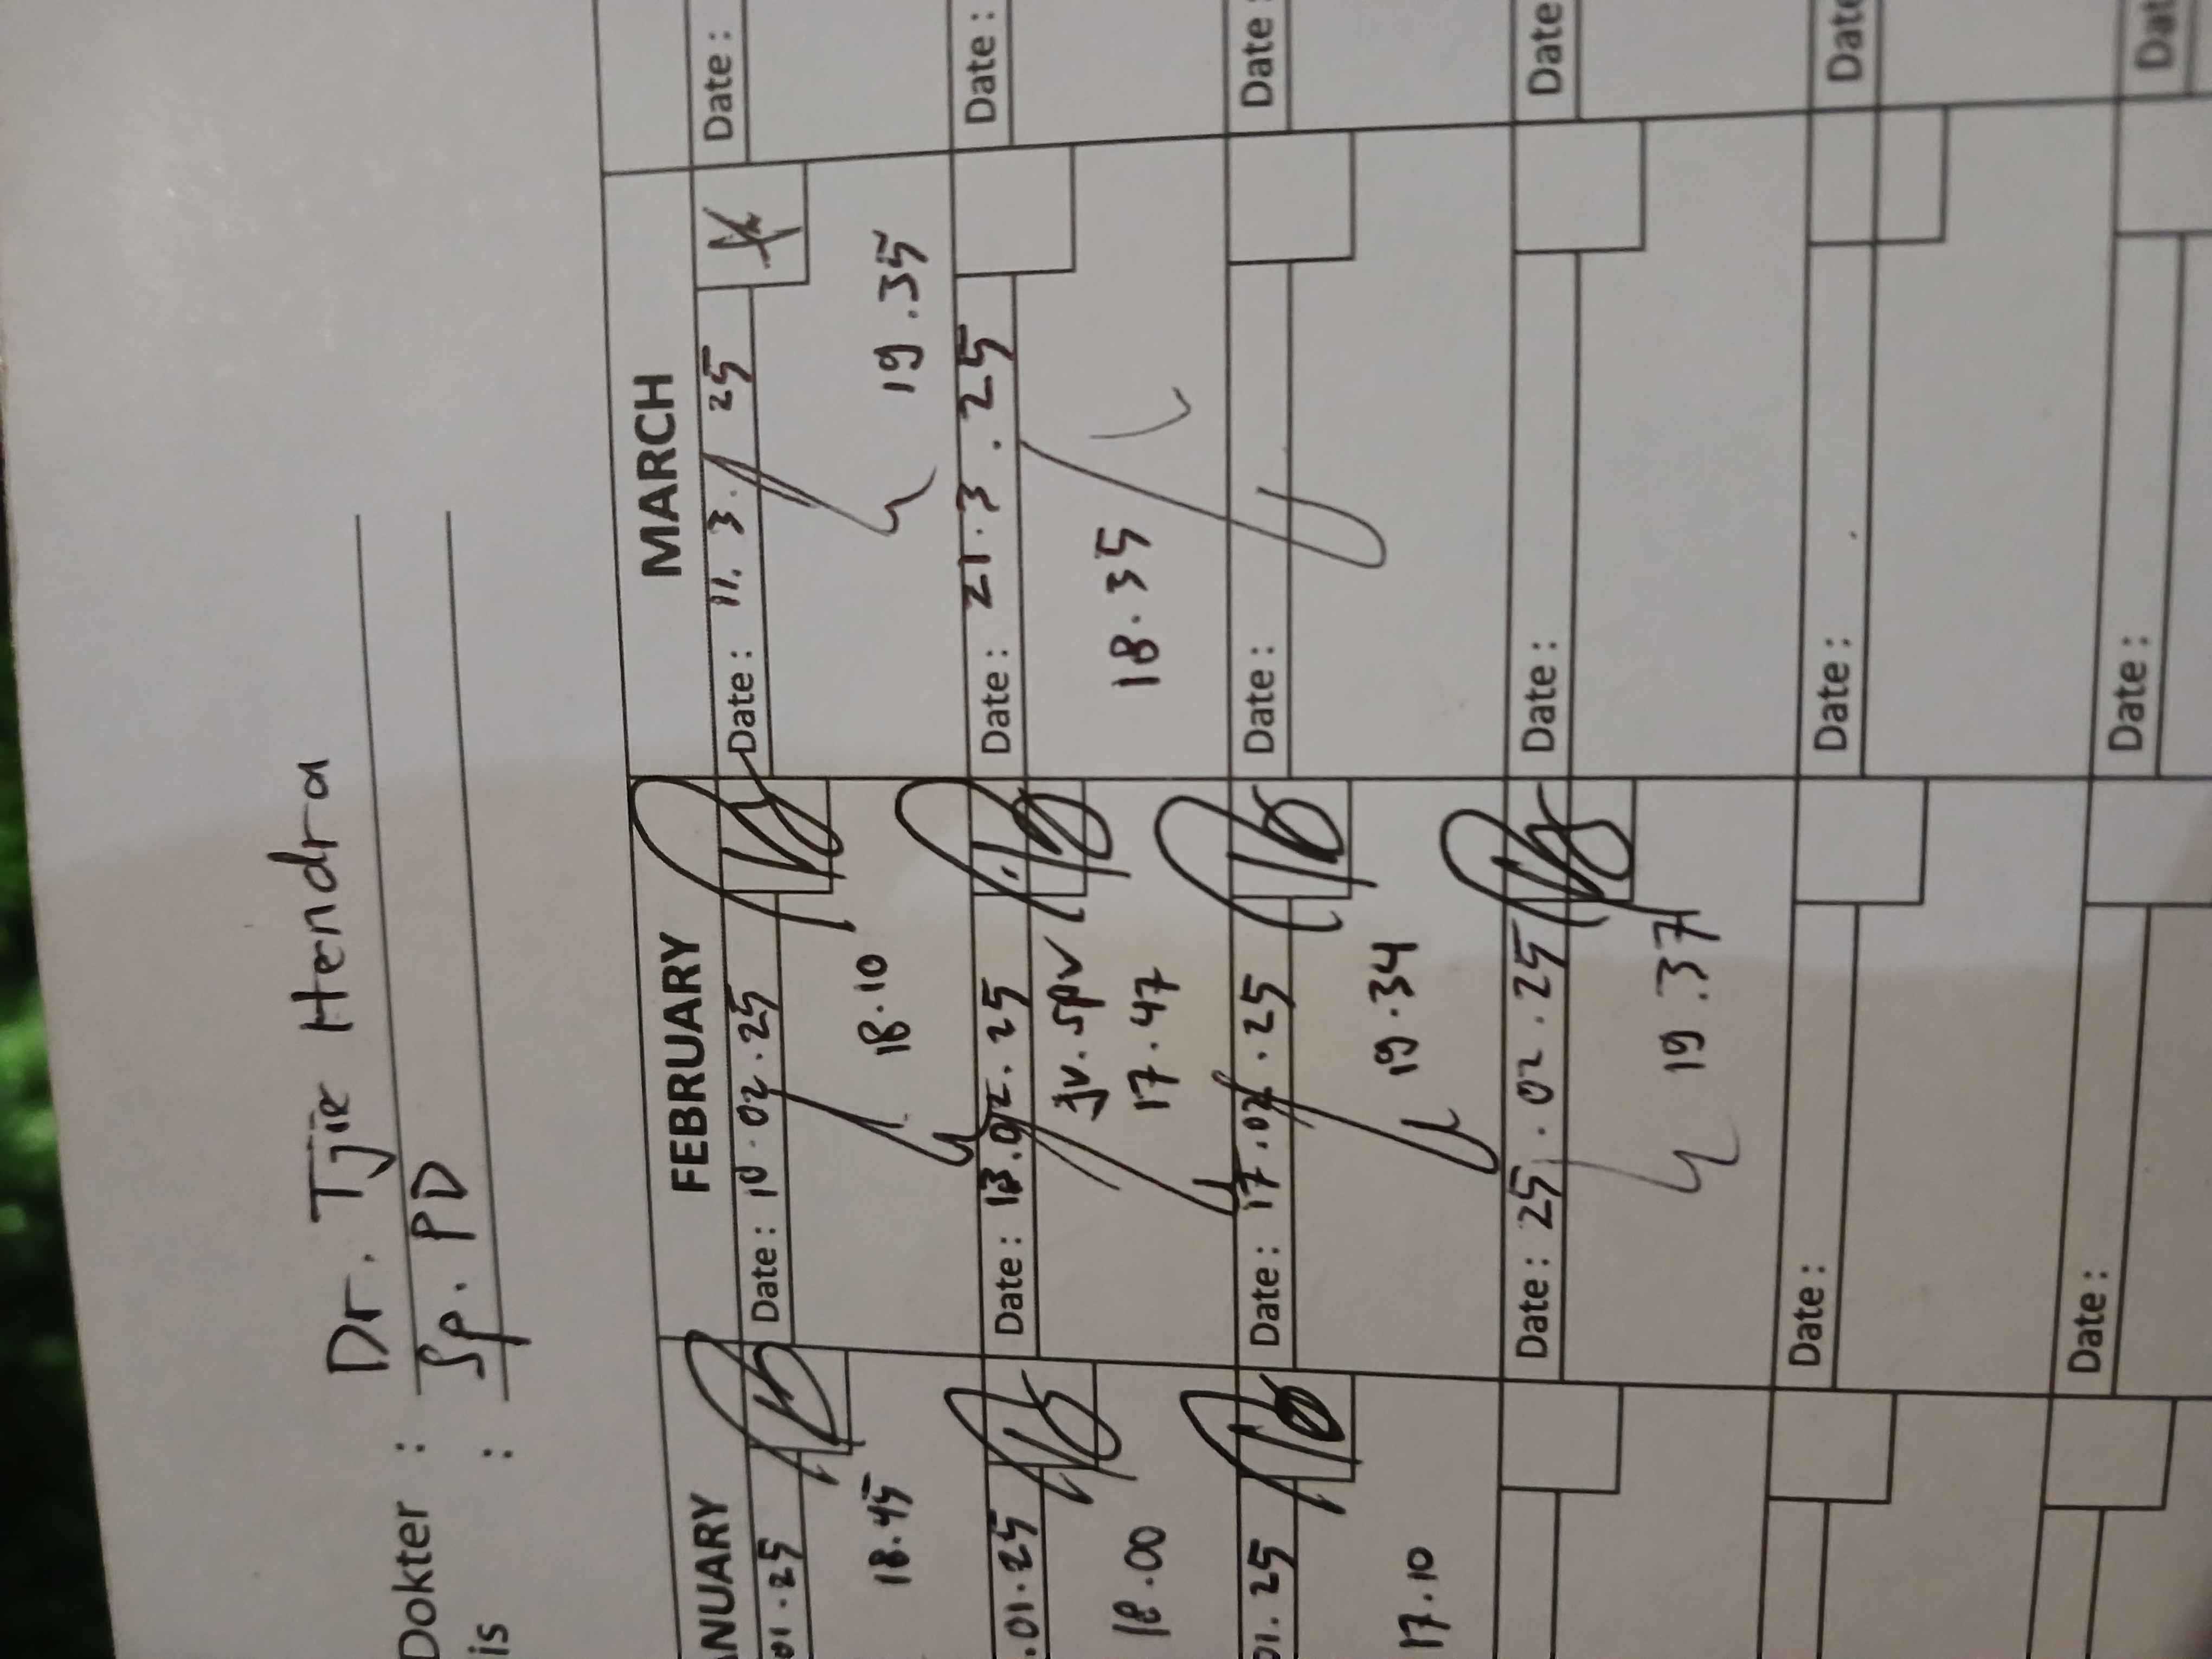 Dokter : Dr. Tjie Hendra
is : Sp. PD
ANUARY FEBRUARY MARCH
01.25 Date : 10.02.25 Date : 11.3.25 Date :
18.45 18.10 19.35
.01.25 Date : 13.02.25 Date : 21.3.25 Date :
jv. spv
18.00 17.47 18.35
01.25 Date : 17.02.25 Date : Date :
17.10 19.34
Date : 25.02.25 Date : Date
19.37
Date : Date : Date
Date : Date : Dat